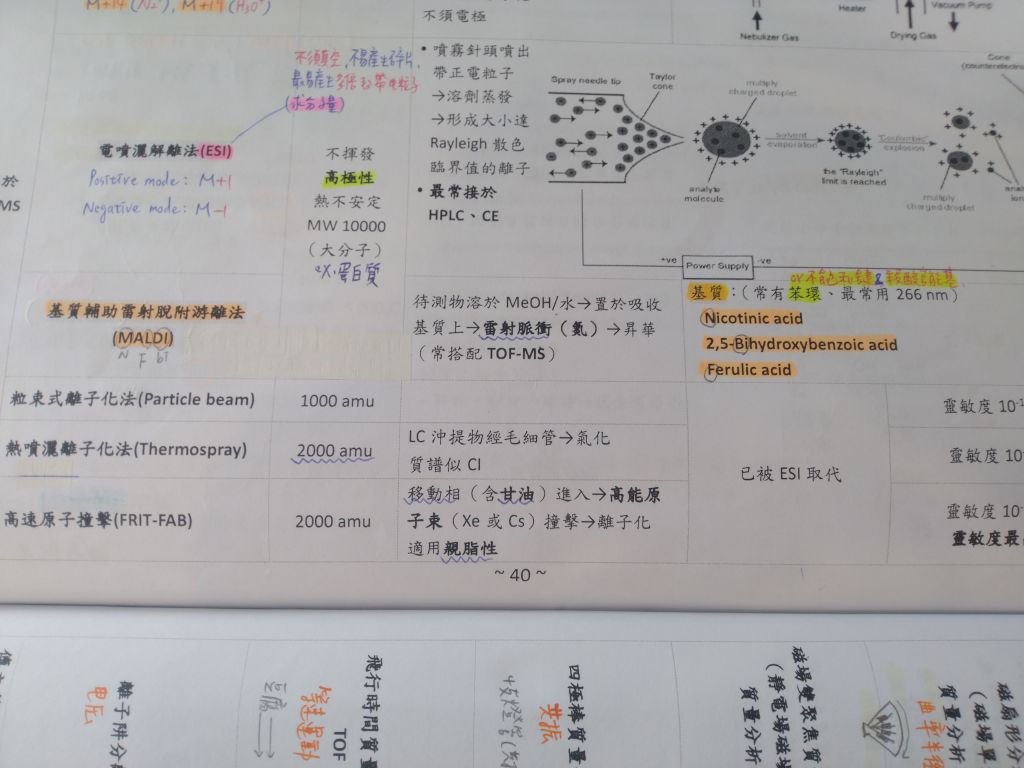 M+14 (N2+), M+19 (H3O+)
不須電極
Heater
Vacuum Pump
Nebulizer Gas
Drying Gas
不須真空,不易產生碎片,
最易產生多倍數帶電粒子
(求分子量)
電噴灑解離法(ESI)
Positive mode: M+1
Negative mode: M-1
於
MS
不揮發
高極性
熱不安定
MW 10000
(大分子)
ex.蛋白質
• 噴霧針頭噴出
帶正電粒子
→溶劑蒸發
→形成大小達
Rayleigh 散色
臨界值的離子
• 最常接於
HPLC、CE
Spray needle tip
Taylor
cone
multiply
charged droplet
Cone
(counterelectro
solvent
evaporation
"Coulombic"
explosion
analyte
molecule
the "Rayleigh"
limit is reached
multiply
charged droplet
+ve
Power Supply
-ve
基質輔助雷射脫附游離法
(MALDI)
N F bi
待測物溶於 MeOH/水→置於吸收
基質上→雷射脈衝(氮)→昇華
(常搭配 TOF-MS)
or不飽和鍵&羧酸官能基
基質:(常有苯環、最常用 266 nm)
Nicotinic acid
2,5-Bihydroxybenzoic acid
Ferulic acid
粒束式離子化法(Particle beam)
1000 amu
靈敏度 10-1
熱噴灑離子化法(Thermospray)
2000 amu
LC 沖提物經毛細管→氣化
質譜似 CI
已被 ESI 取代
靈敏度 10
高速原子撞擊(FRIT-FAB)
2000 amu
移動相(含甘油)進入→高能原
子束(Xe 或 Cs)撞擊→離子化
適用親脂性
靈敏度 10
靈敏度最
~ 40 ~
離子阱分
電壓
飛行時間質量
TOF
等速運動
四極棒質量
共振
磁場雙聚焦質
(靜電場磁場
質量分析
磁扇形分
(磁場單
質量分析
曲率半徑